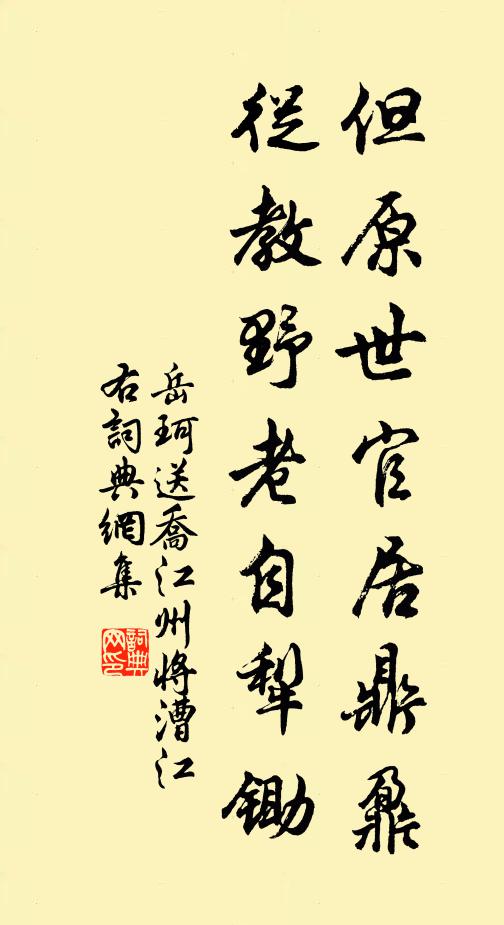 但原世官居鼎鼐
從教野老自犁鋤
岳珂送喬江州將漕江
右詞典網集
詞典
网印